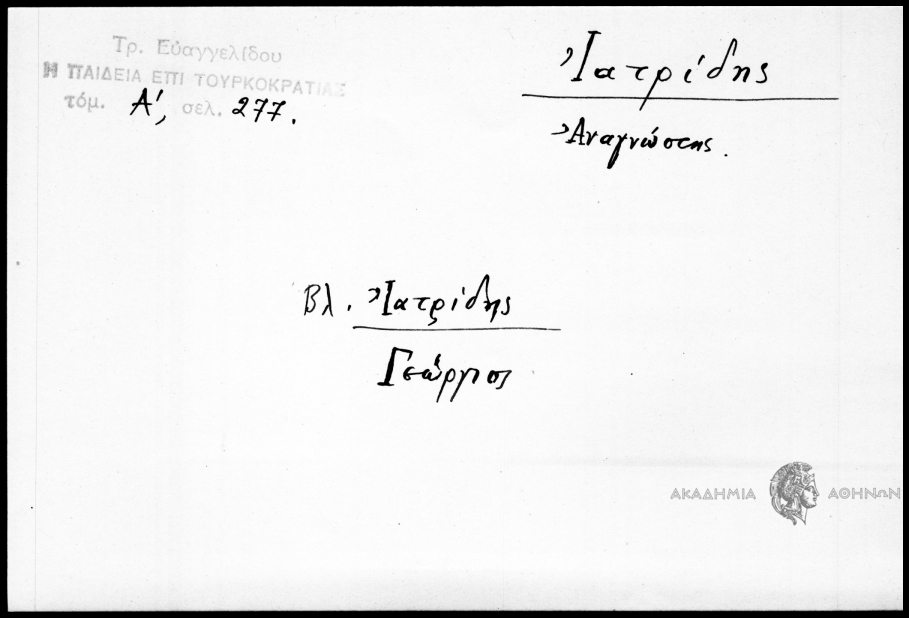 Τρ. Εὐαγγελίδου
Η ΠΑΙΔΕΙΑ ΕΠΙ ΤΟΥΡΚΟΚΡΑΤΙΑΣ
τόμ. Α', σελ. 277.
Ἰατρίδης
Ἀναγνώστης.
Βλ. Ἰατρίδης
Γεώργιος
ΑΚΑΔΗΜΙΑ ΑΘΗΝΩΝ